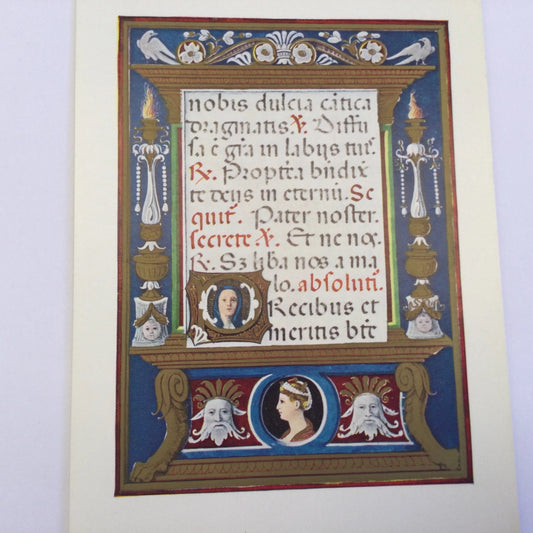 nobis dulcia cãtica
dragmatis. ℣. Diffu
sa ẽ grã in labijs tuis̃.
℟. Propterẽa bñdixi
te deus in eternũ. Se
quit᷑. Pater noster.
secrete. ℣. Et ne nos.
℟. Sꝫ liba nos a ma
lo. absoluti᷑.
PRecibus et
meritis btẽ